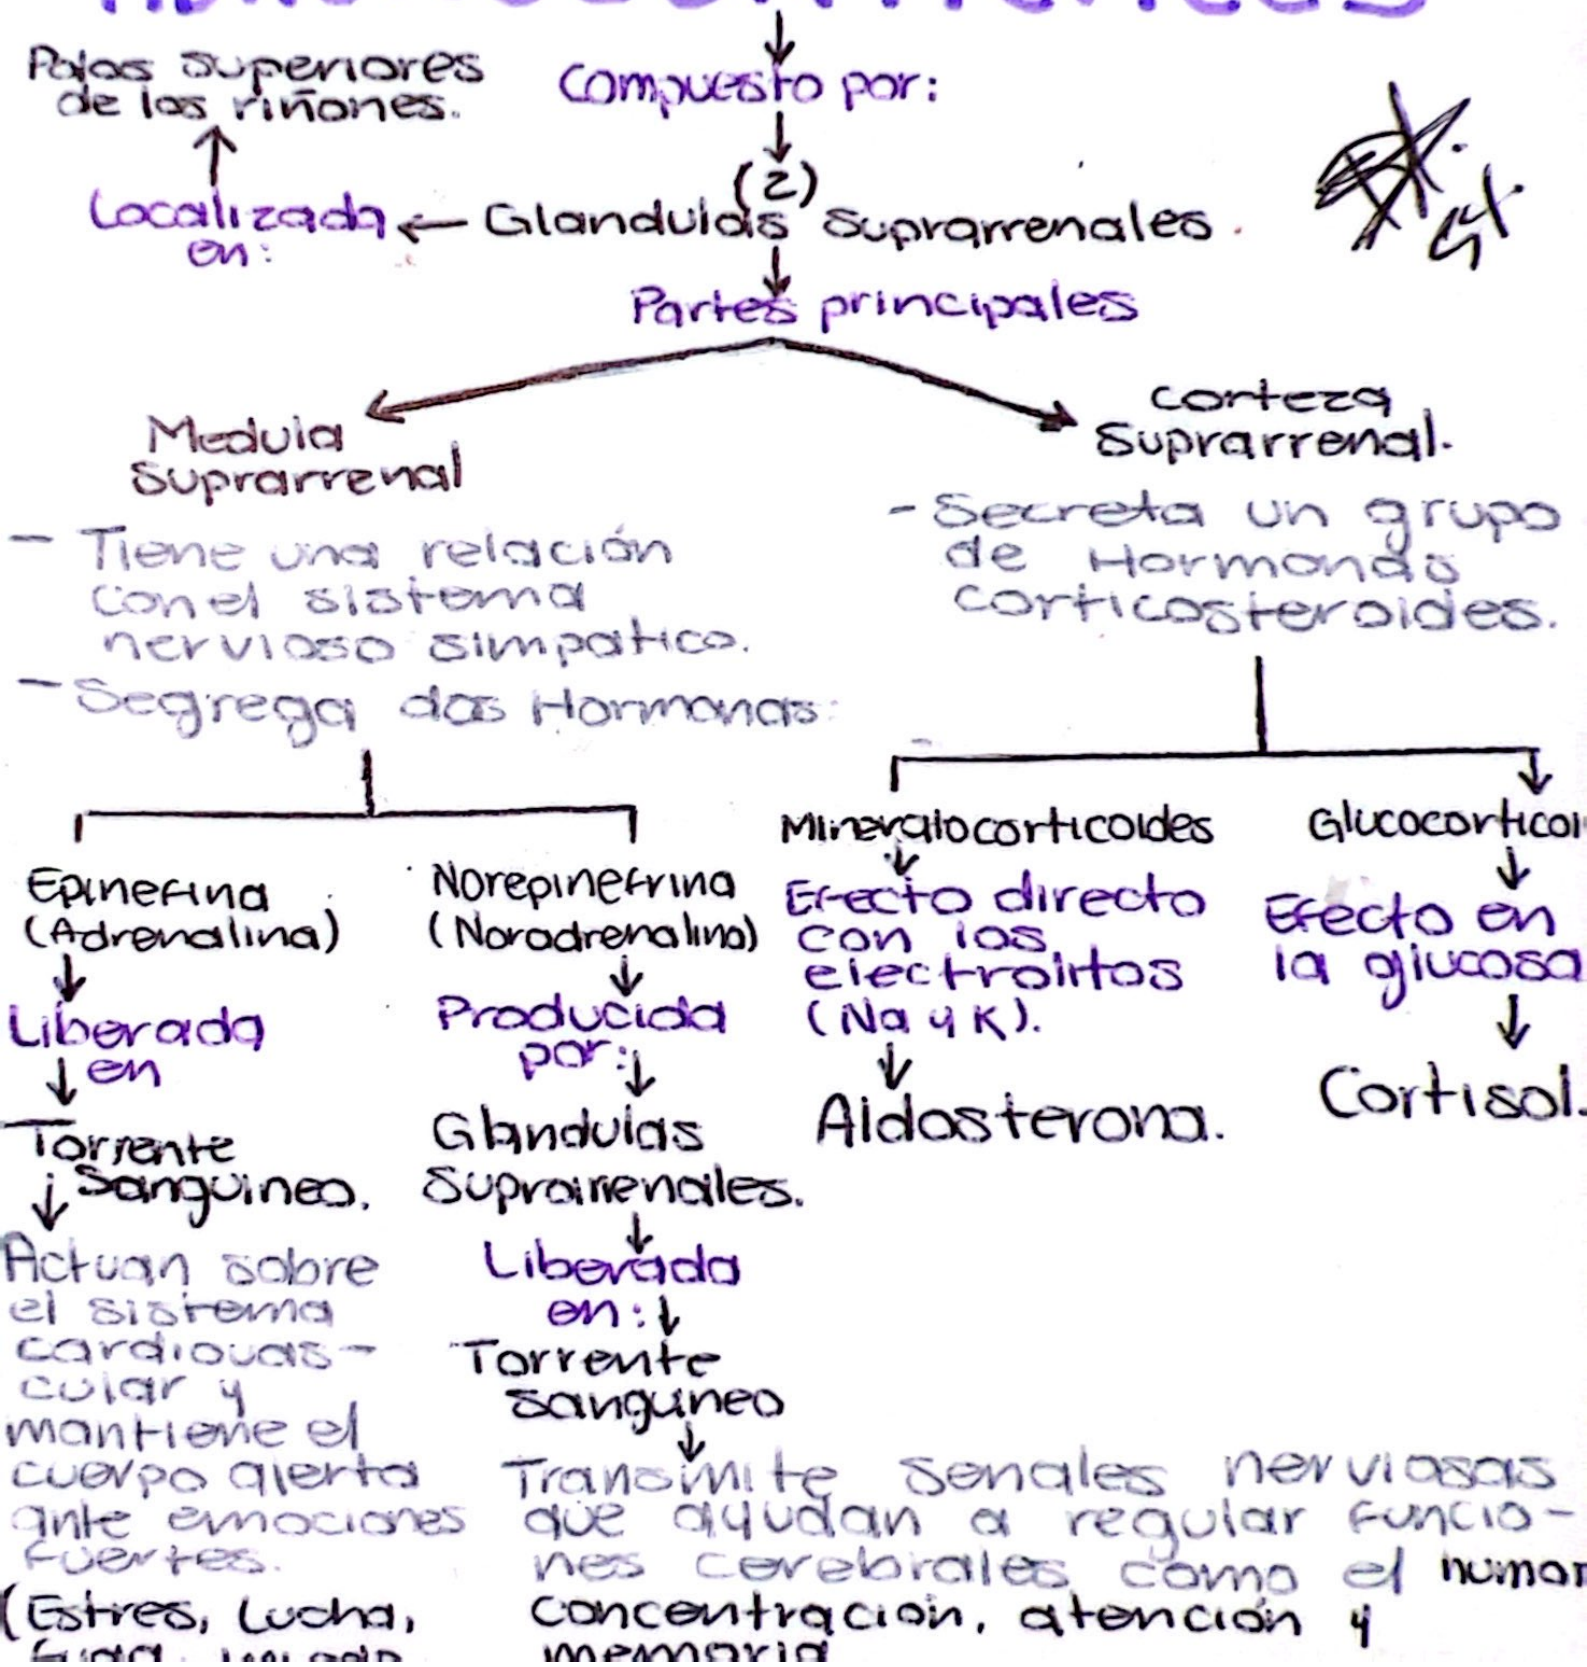 Polos superiores
de los riñones.
Compuesto por:
(2)
Localizada
en:
Glandulas Suprarrenales.
Partes principales
Medula
Suprarrenal
corteza
Suprarrenal.
- Tiene una relación
con el sistema
nervioso simpatico.
- Segrega dos Hormonas:
- Secreta un grupo
de Hormonas
corticosteroides.
Epinefina
(Adrenalina)
Liberada
en
Torrente
Sanguineo.
Actuan sobre
el sistema
cardiovas-
cular y
mantiene el
cuerpo alerta
ante emociones
fuertes.
(Estres, Lucha,
Norepinefrina
(Noradrenalina)
Producida
por:
Glandulas
Suprarrenales.
Liberada
en:
Torrente
sanguneo
Transmite senales nerviosas
que ayudan a regular funcio-
nes cerebrales como el humor
concentración, atención y
memoria
Mineralocorticoides
Efecto directo
con los
electrolitos
(Na y K).
Aldosterona.
Glucocorticoi
Efecto en
la glucosa
Cortisol.